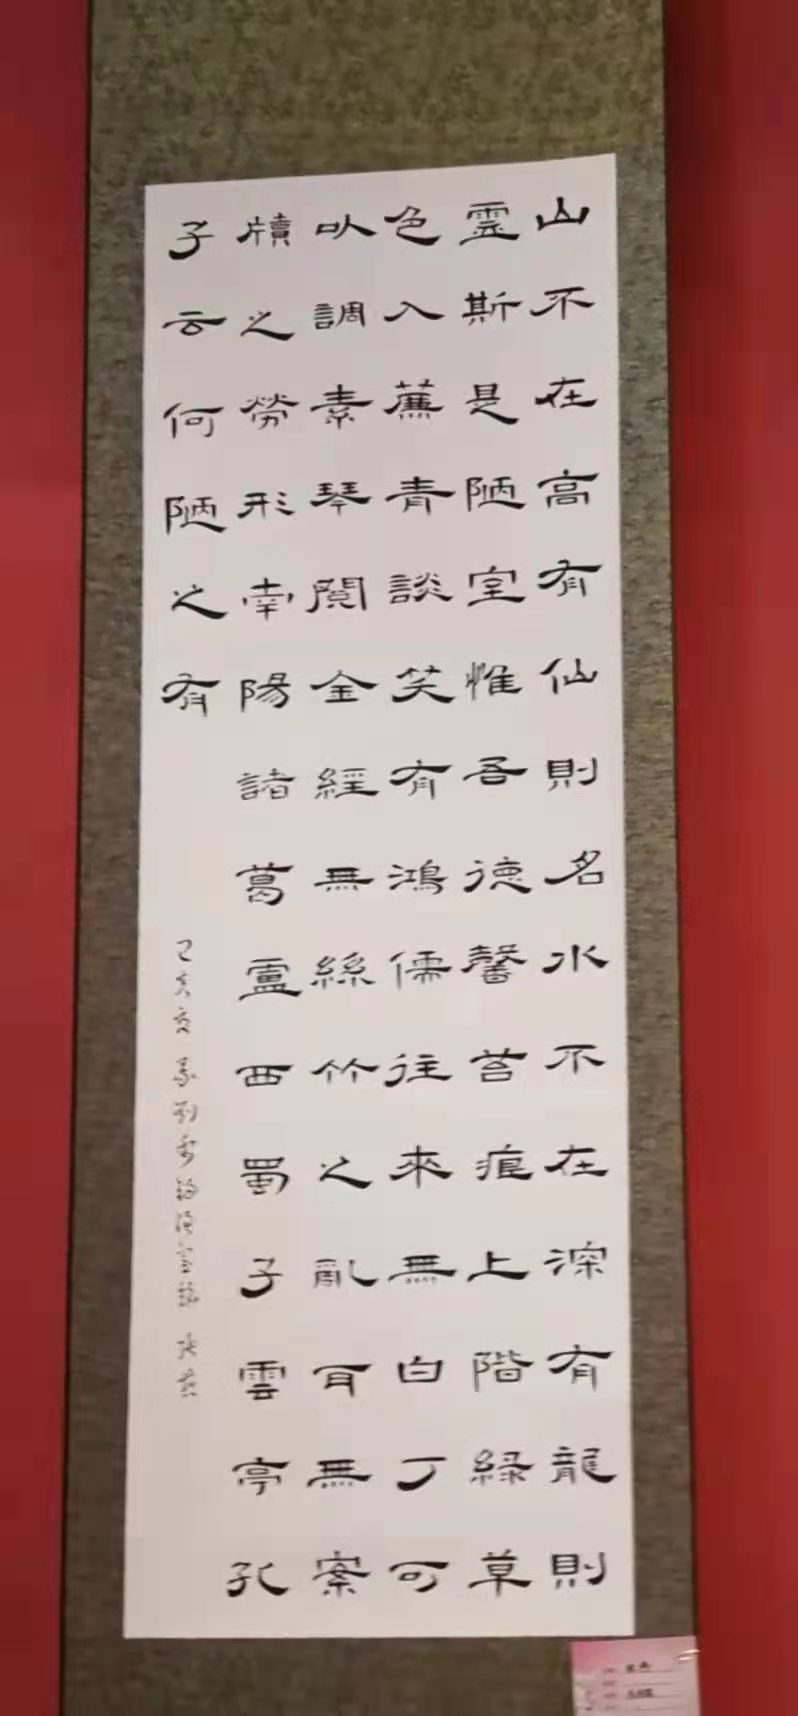 山不在高有仙則名水不在深有龍則
靈斯是陋室惟吾德馨苔痕上階緑草
色入薕青談笑有鴻儒往來無白丁可
以調素琴閱金經無絲竹之亂耳無案
牘之勞形南陽諸葛盧西蜀子雲亭孔
子云何陋之有
己亥夏录刘禹锡陋室銘张